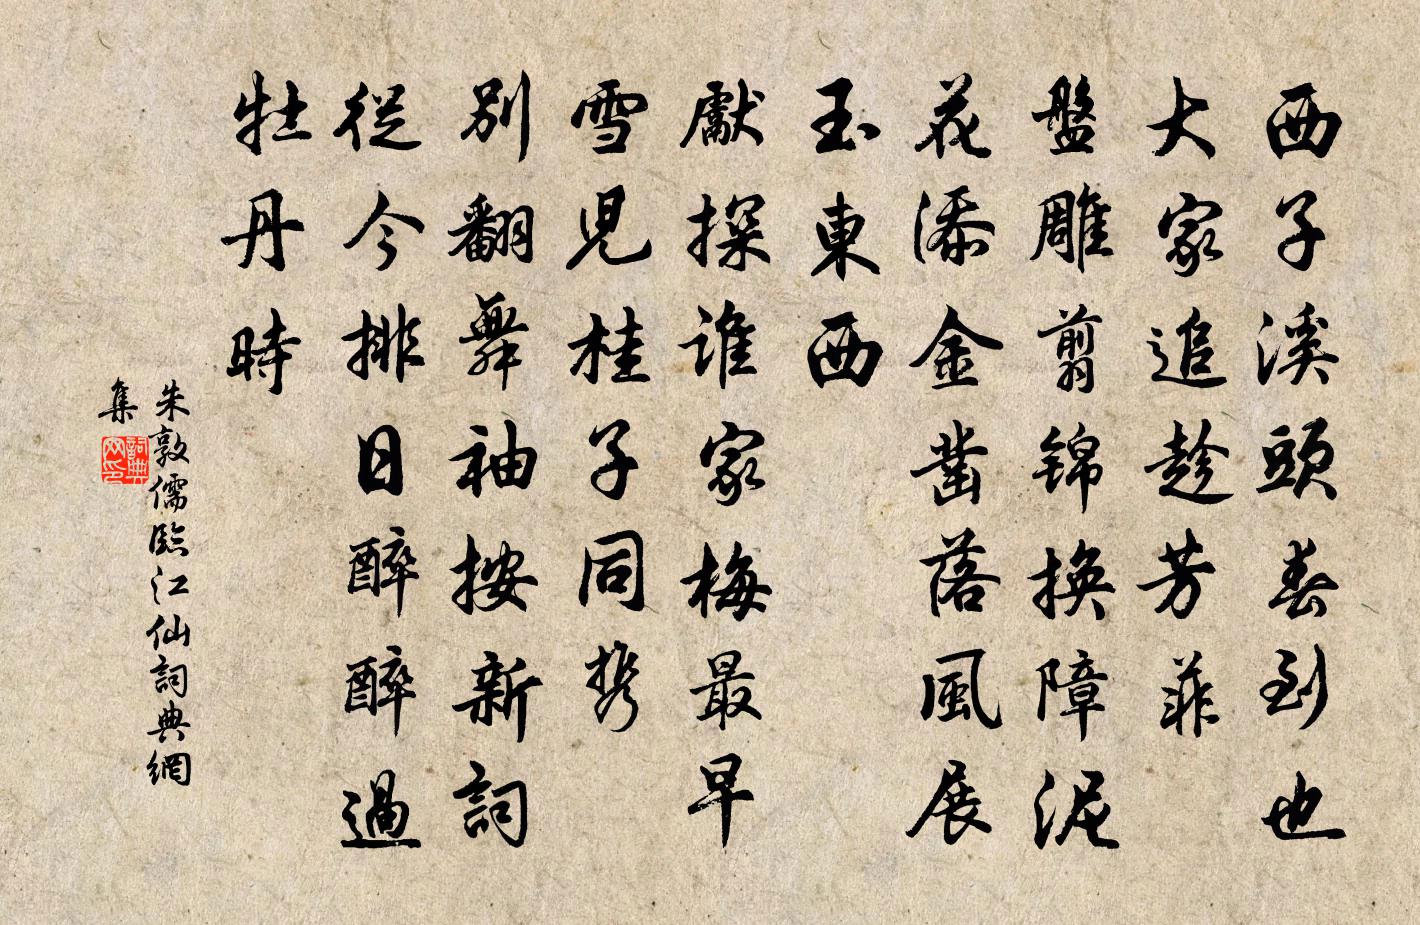 西子溪頭春到也
大家追趁芳菲
盤雕剪錦換障泥
花添金鑿落風展
玉東西
獻探誰家梅最早
雪兒桂子同攜
別翻舞袖按新詞
從今排日醉醉過
牡丹時
朱敦儒臨江仙詞典網
集
詞典網印